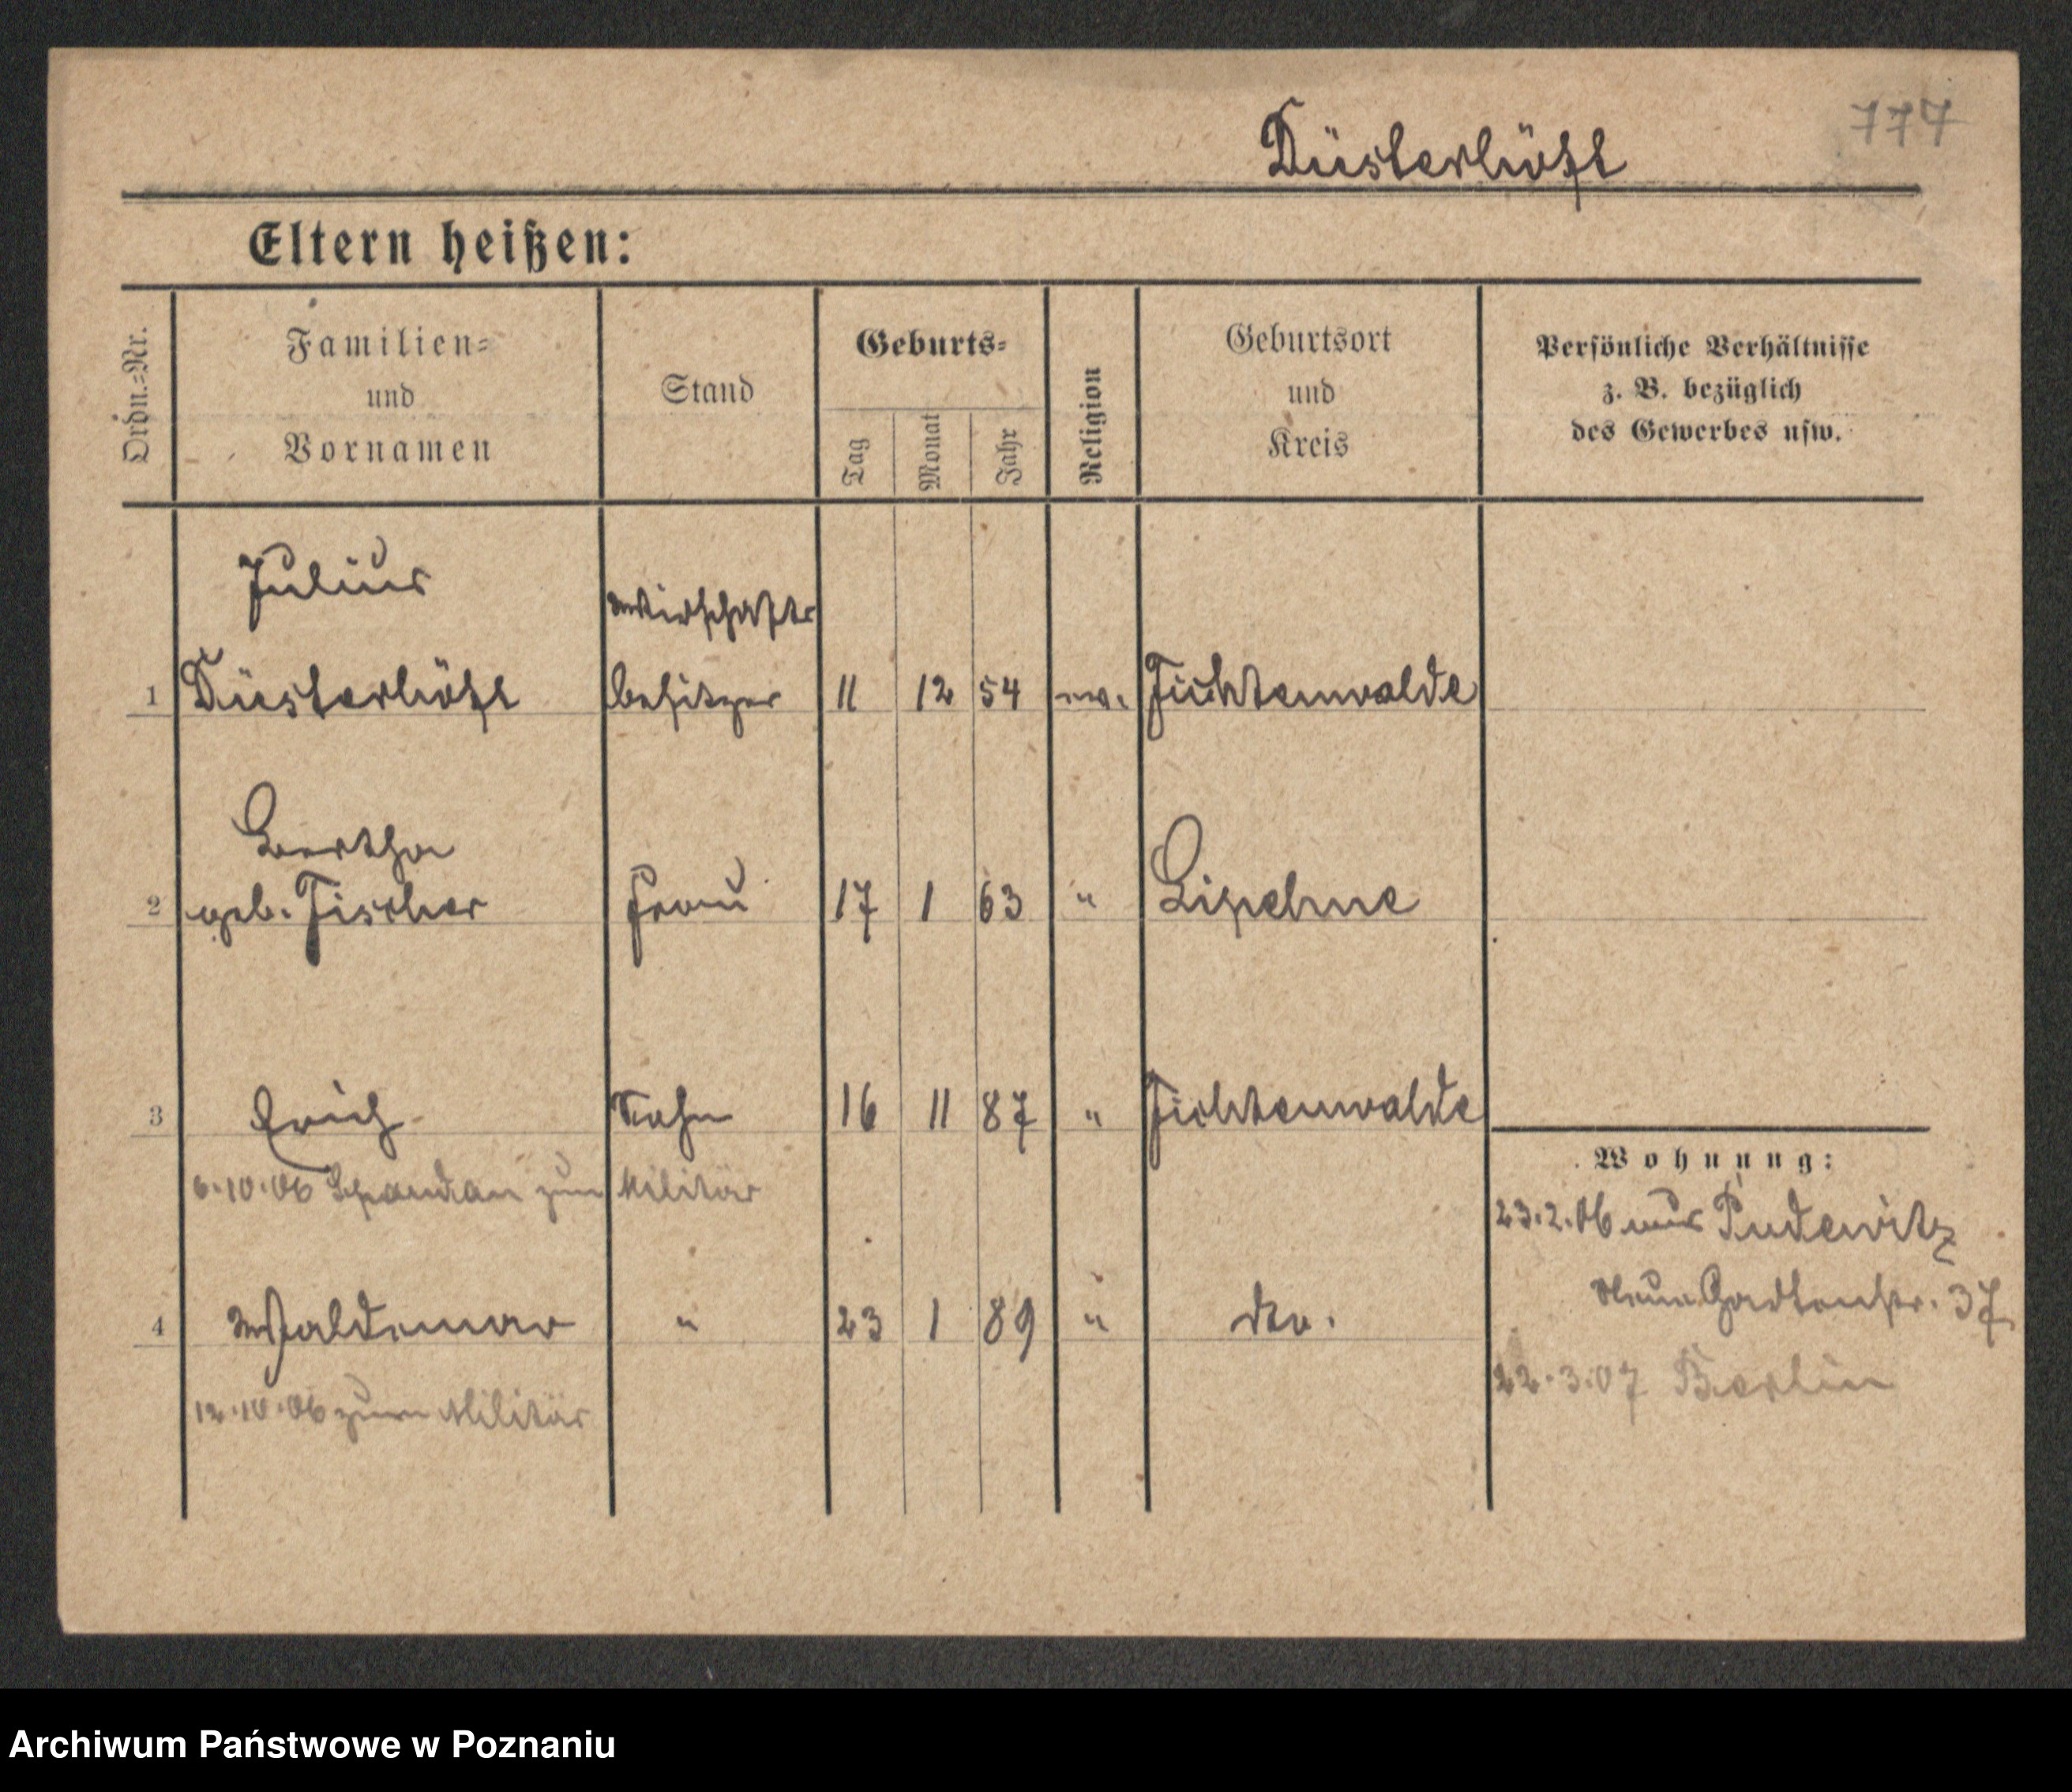 777
Düsterhöft
Eltern heißen:
Ordn.=Nr.
Familien=
und
Vornamen
Stand
Geburts=
Tag
Monat
Jahr
Religion
Geburtsort
und
Kreis
Persönliche Verhältnisse
z. B. bezüglich
des Gewerbes usw.
Julius
Wirtschafts
1 Düsterhöft besitzer 11 12 54 ev. Fichtenwalde
Bertha
2 geb. Fischer Frau 17 1 63 " Lipehne
3 Erich Sohn 16 11 87 " Fichtenwalde
6.10.06 Spandau zum Militär
Wohnung:
23.2.06 aus Pudewitz
Neue Gartenstr. 37
4 Waldemar " 23 1 89 " do.
22.3.07 Berlin
12.10.06 zum Militär
Archiwum Państwowe w Poznaniu